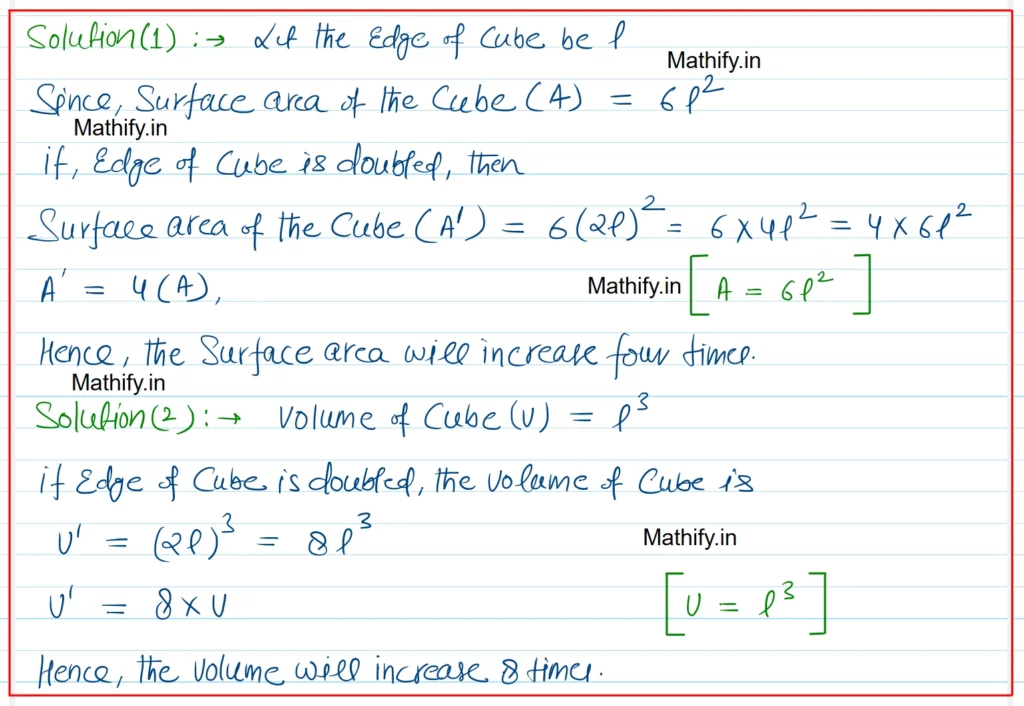 Solution(1) :→ Let the Edge of Cube be l
Mathify.in
Since, Surface area of the Cube (A) = 6l²
Mathify.in
if, Edge of Cube is doubled, then
Surface area of the Cube (A') = 6(2l)² = 6×4l² = 4×6l²
A' = 4(A), Mathify.in [A = 6l²]
Hence, the Surface area will increase four times.
Mathify.in
Solution(2) :→ Volume of Cube (V) = l³
if Edge of Cube is doubled, the volume of Cube is
V' = (2l)³ = 8l³ Mathify.in
V' = 8×V [V = l³]
Hence, the volume will increase 8 times.